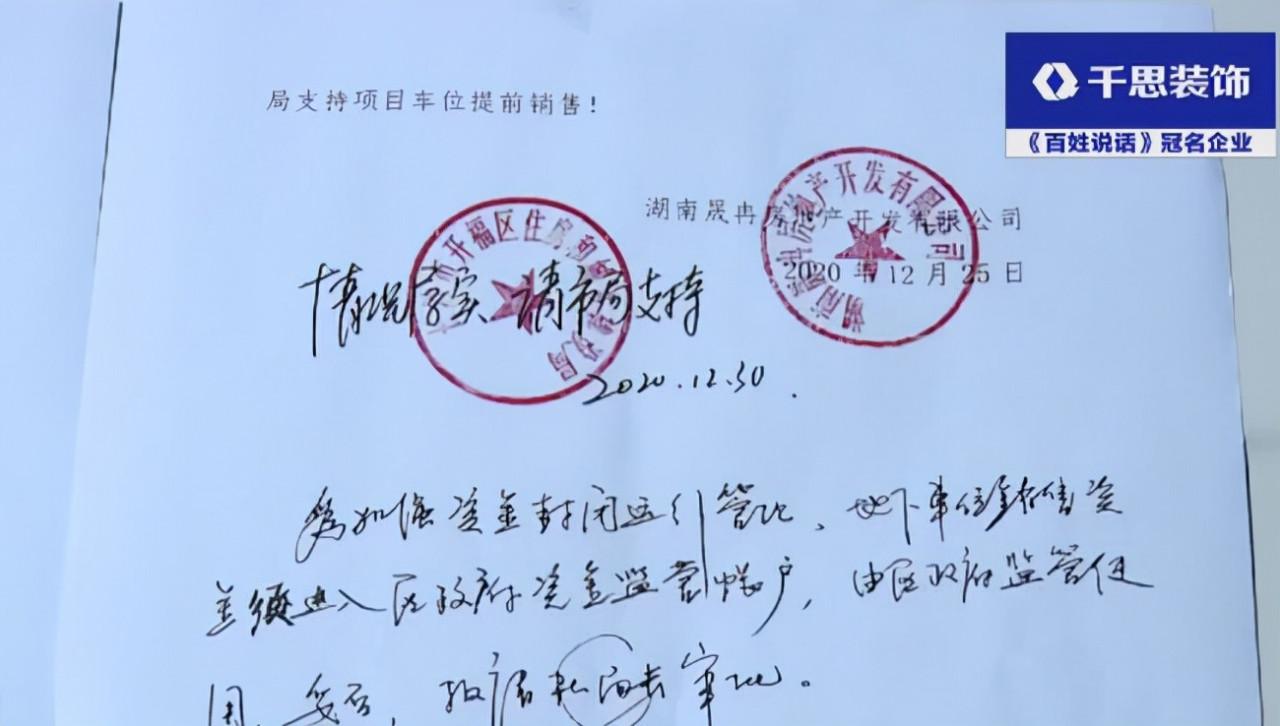 千思装饰
《百姓说话》冠名企业
局支持项目车位提前销售！
湖南晟冉房地产开发有限公司
2020年12月25日
开福区住房
房地产开发有限公司
情况属实 请市局支持
2020.12.30.
为加强资金封闭运行管理，地下车位销售资
金须进入区政府资金监管帐户，由区政府监管使
用，妥否，报局 审批。